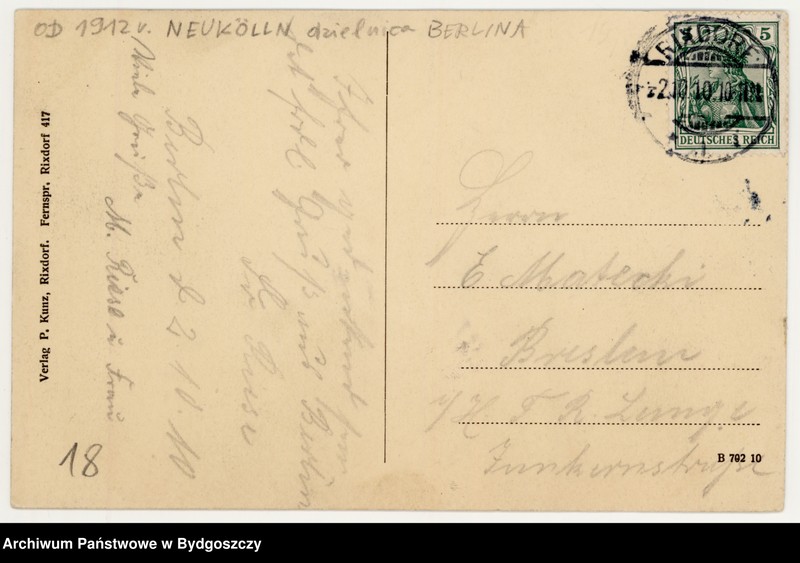 OD 1912 r. NEUKÖLLN dzielnica BERLINA
RIXDORF
2.10.10. 10-11
5
DEUTSCHES REICH
Verlag P. Kunz, Rixdorf. Fernspr. Rixdorf 417
frdl. Gruß aus Berlin
Riese
Berlin d 2.10.10
Viele Grüße
M. Riese u Frau
Herrn
E Matecki
Breslau
F. R. Lange
Junkernstraße
B 702 10
18
Archiwum Państwowe w Bydgoszczy